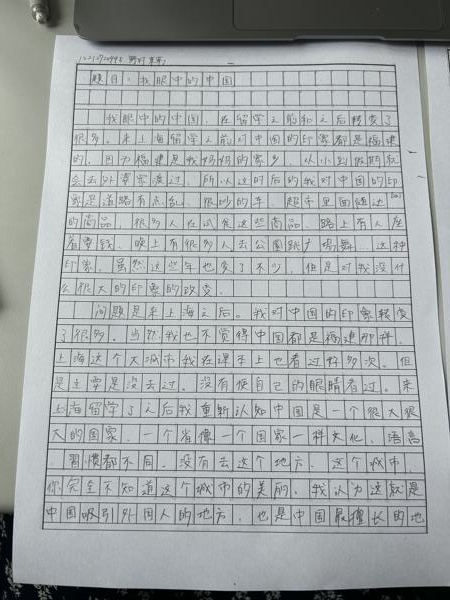 题目：我眼中的中国
我眼中的中国，在留学之前和之后转变了
很多。来上海留学之前对中国的印象都是福建
的，因为福建是我妈妈的家乡，从小到
会去外婆家渡过，所以这时后的我对中国的印
象是道路有点乱，很吵的车，超市里面
的商品，很多人在试食这些商品，路上有人座
着要钱，晚上有很多人去公园跳广场舞，这种
印象。虽然这些年也变了不少，但是对我没什
么很大的印象的改变。
问题是来上海之后。我对中国的印象转变
了很多。当然我也不觉得中国都是福建那样，
上海这个大城市我在课本上也看过好多次。但
是主要是没去过，没有使自己的眼睛看过。来
上海留学了之后我重新认知中国是一个很大很
大的国家，一个省像一个国家一样文化，语言
习惯都不同。没有去这个地方，这个城市，
你完全不知道这个城市的美丽。我认为这就是
中国吸引外国人的地方，也是中国最擅长的地